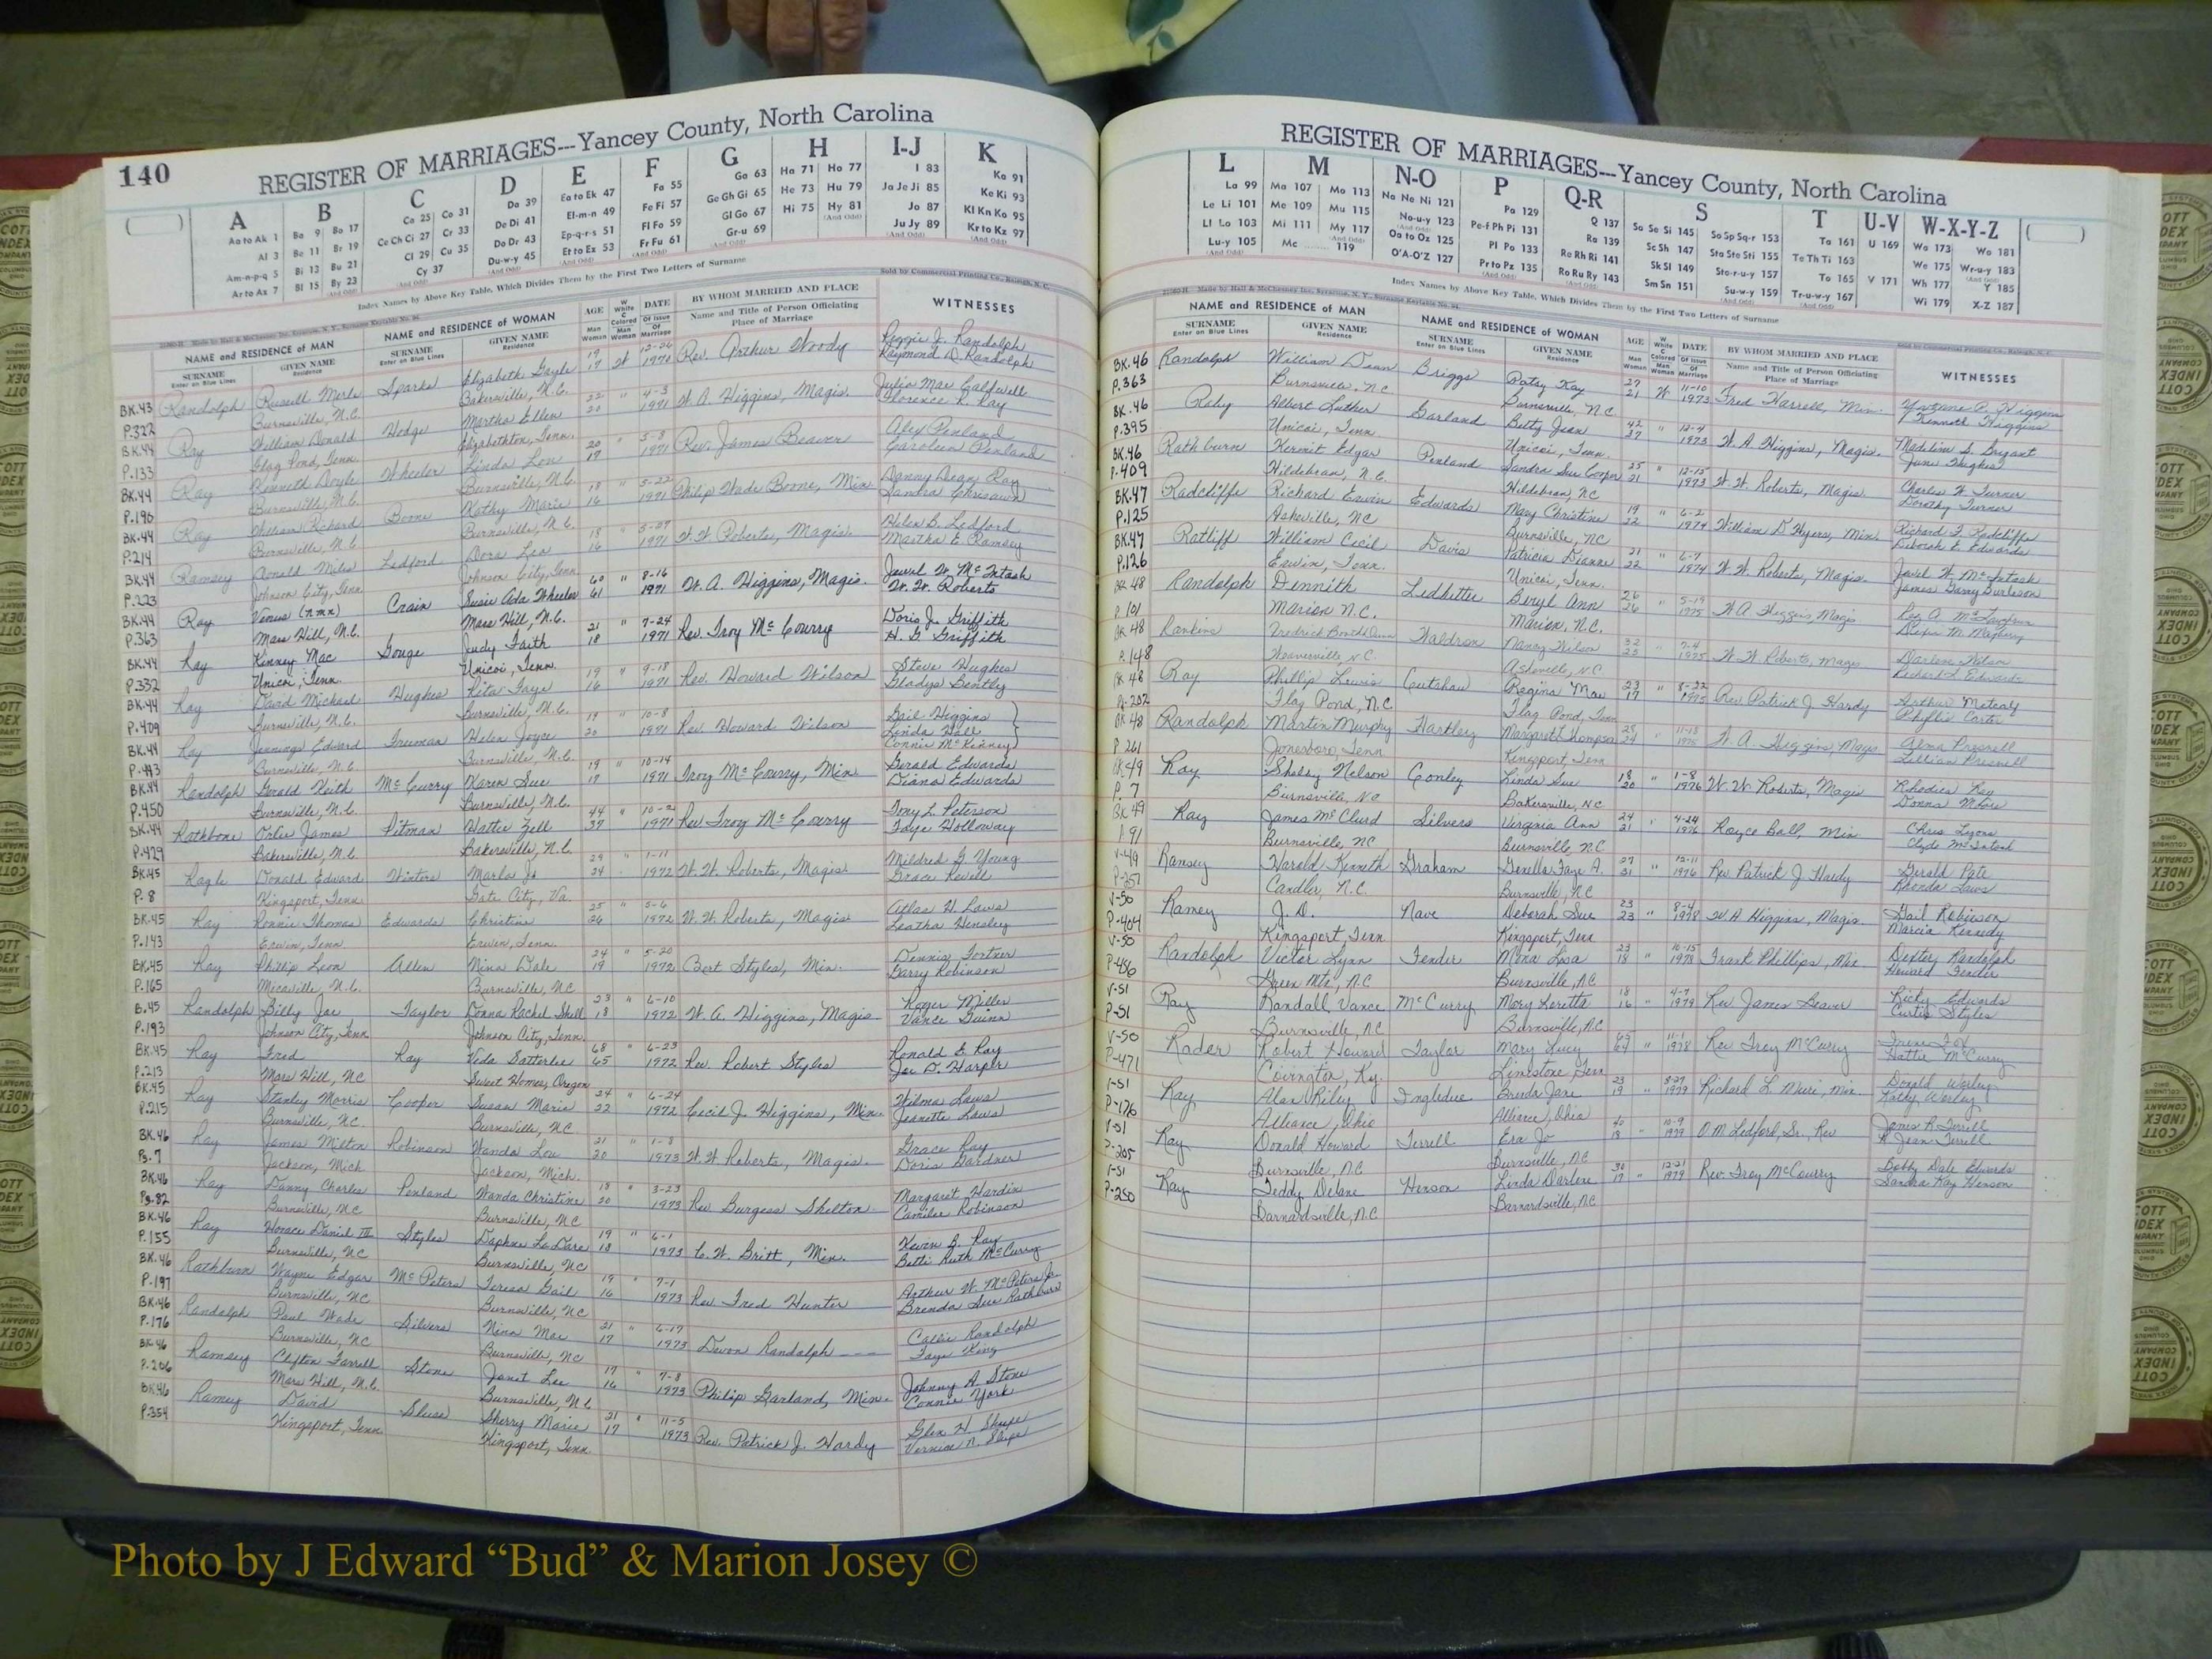 140
REGISTER OF MARRIAGES---Yancey County, North Carolina
( )
A B C D E F G H I-J K
Aa to Ak 1
Al 3
Am-n-p-q 5
Ar to Az 7
Ba 9 Bo 17
Be 11 Br 19
Bi 13 Bu 21
Bl 15 By 23
Ca 25 Co 31
Ce Ch Ci 27 Cr 33
Cl 29 Cu 35
Cy 37
Da 39
De Di 41
Do Dr 43
Du-w-y 45
Ea to Ek 47
El-m-n 49
Ep-q-r-s 51
Et to Ez 53
Fa 55
Fe Fi 57
Fl Fo 59
Fr Fu 61
Ga 63
Ge Gh Gi 65
Gl Go 67
Gr-u 69
Ha 71 Ho 77
He 73 Hu 79
Hi 75 Hy 81
I 83
Ja Je Ji 85
Jo 87
Ju Jy 89
Ka 91
Ke Ki 93
Kl Kn Ko 95
Kr to Kz 97
Index Names by Above Key Table, Which Divides Them by the First Two Letters of Surname
Sold by Commercial Printing Co., Raleigh, N. C.
NAME and RESIDENCE OF MAN
NAME and RESIDENCE OF WOMAN
AGE
DATE
BY WHOM MARRIED AND PLACE
Name and Title of Person Officiating
Place of Marriage
WITNESSES
BK.43 Randolph Russell Merle Sparks Elizabeth Gayle 19 W 12-26 Rev. Arthur Woody Reggie J. Randolph
P.322 Burnsville, N.C. Bakersville, N.C. 19 1970 Raymond D. Randolph
BK.44 Ray William Donald Hodge Martha Ellen 22 " 4-3 W. A. Higgins, Magis. Julia Mae Caldwell
P.133 Flag Pond, Tenn. Elizabethton, Tenn. 20 1971 Florence R. Ray
BK.44 Ray Kenneth Doyle Wheeler Linda Lou 20 " 5-8 Rev. James Beaver Alex Penland
P.190 Burnsville, N.C. Burnsville, N.C. 17 1971 Caroleen Penland
BK.44 Ray William Richard Boone Kathy Marie 18 " 5-22 Philip Wade Boone, Min. Danny Dean Ray
P.214 Burnsville, N.C. Burnsville, N.C. 16 1971 Sandra Chrisawn
BK.44 Ramsey Ronald Miles Ledford Dora Lea 18 " 5-29 W. W. Roberts, Magis. Helen B. Ledford
P.223 Johnson City, Tenn. Johnson City, Tenn. 16 1971 Martha E. Ramsey
BK.44 Ray Venus (nmn) Crain Susie Ada Wheeler 60 " 8-16 W. A. Higgins, Magis. Jewel W. McIntosh
P.363 Mars Hill, N.C. Mars Hill, N.C. 61 1971 W. W. Roberts
BK.44 Ray Kinney Mac Gouge Judy Faith 21 " 7-24 Rev. Troy McCourry Doris J. Griffith
P.332 Unicoi, Tenn. Unicoi, Tenn. 18 1971 H. G. Griffith
BK.44 Ray David Michael Hughes Rita Faye 19 " 9-18 Rev. Howard Wilson Steve Hughes
P.409 Burnsville, N.C. Burnsville, N.C. 16 1971 Gladys Bently
BK.44 Ray Jennings Edward Freeman Helen Joyce 19 " 10-8 Rev. Howard Wilson Gail Higgins
P.443 Burnsville, N.C. Burnsville, N.C. 20 1971 Linda Hall
Connie McKinney
BK.44 Randolph Gerald Keith McCurry Karen Sue 19 " 10-14 Troy McCourry, Min. Gerald Edwards
P.450 Burnsville, N.C. Burnsville, N.C. 19 1971 Diana Edwards
BK.44 Rathbone Orlie James Pitman Hattie Zell 44 " 10-2 Rev. Troy McCourry Tony L. Peterson
P.429 Bakersville, N.C. Bakersville, N.C. 37 1971 Faye Holloway
BK.45 Ragle Donald Edward Winters Marla Jo 29 " 1-11 W. W. Roberts, Magis. Mildred G. Young
P.8 Kingsport, Tenn. Gate City, Va. 24 1972 Grace Revell
BK.45 Ray Ronnie Thomas Edwards Christine 25 " 5-6 W. W. Roberts, Magis. Atlas H. Laws
P.143 Erwin, Tenn. Erwin, Tenn. 26 1972 Leatha Hensley
BK.45 Ray Phillip Leon Allen Nina Dale 24 " 5-20 Bert Styles, Min. Dennis Fortner
P.165 Micaville, N.C. Burnsville, NC 19 1972 Garry Robinson
B.45 Randolph Billy Joe Taylor Donna Rachel Shell 23 " 6-10 W. A. Higgins, Magis. Roger Miller
P.193 Johnson City, Tenn. Johnson City, Tenn. 18 1972 Vance Guinn
BK.45 Ray Fred Ray Veda Satterlee 68 " 6-23 Rev. Robert Styles Ronald E. Ray
P.213 Mars Hill, NC Sweet Homes, Oregon 65 1972 Joe D. Harper
BK.45 Ray Stanley Morris Cooper Susan Maria 24 " 6-24 Cecil J. Higgins, Min. Wilma Laws
P.215 Burnsville, NC Burnsville, NC 22 1972 Jeanette Laws
BK.46 Ray James Milton Robinson Wanda Lou 21 " 1-8 W. W. Roberts, Magis. Grace Ray
Pg.7 Jackson, Mich. Jackson, Mich. 20 1973 Doris Gardner
BK.46 Ray Danny Charles Penland Wanda Christine 18 " 3-23 Rev Burgess Shelton Margaret Hardin
Pg.82 Burnsville, NC Burnsville, NC 20 1973 Camilee Robinson
BK.46 Ray Horace Daniel III Styles Daphne La Dare 19 " 6-1 C. W. Britt, Min. Kevin B. Ray
P.155 Burnsville, NC Burnsville, NC 18 1973 Bette Ruth McCurry
BK.46 Rathburn Wayne Edgar McPeters Teresa Gail 19 " 7-1 Rev. Fred Hunter Arthur W. McPeters Jr.
P.197 Burnsville, NC Burnsville, NC 16 1973 Brenda Sue Rathburn
BK.46 Randolph Paul Wade Silvers Nina Mae 21 " 6-17 Devon Randolph Callie Randolph
P.176 Burnsville, NC Burnsville, NC 17 1973 Faye King
BK.46 Ramsey Clifton Farrell Stone Janet Lee 17 " 7-8 Philip Garland, Min. Johnny A. Stone
P.206 Mars Hill, N.C. Burnsville, NC 16 1973 Connie York
BK.46 Ramey David Sluse Sherry Marie 21 " 11-5 Rev. Patrick J. Hardy Glen H.
P.354 Kingsport, Tenn. Kingsport, Tenn. 17 1973 Vernice N.
REGISTER OF MARRIAGES---Yancey County, North Carolina
L M N-O P Q-R S T U-V W-X-Y-Z ( )
La 99
Le Li 101
Ll Lo 103
Lu-y 105
Ma 107 Mo 113
Me 109 Mu 115
Mi 111 My 117
Mc 119
Na Ne Ni 121
No-u-y 123
Oa to Oz 125
O'A-O'Z 127
Pa 129
Pe-f Ph Pi 131
Pl Po 133
Pr to Pz 135
Q 137
Ra 139
Re Rh Ri 141
Ro Ru Ry 143
Sa Se Si 145 So Sp Sq-r 153
Sc Sh 147 Sta Ste Sti 155
Sk Sl 149 Sto-r-u-y 157
Sm Sn 151 Su-w-y 159
Ta 161
Te Th Ti 163
To 165
Tr-u-w-y 167
U 169
V 171
Wa 173 Wo 181
We 175 Wr-u-y 183
Wh 177 Y 185
Wi 179 X-Z 187
Index Names by Above Key Table, Which Divides Them by the First Two Letters of Surname
NAME and RESIDENCE OF MAN
SURNAME
Enter on Blue Lines
GIVEN NAME
Residence
NAME and RESIDENCE OF WOMAN
SURNAME
Enter on Blue Lines
GIVEN NAME
Residence
AGE
DATE
BY WHOM MARRIED AND PLACE
Name and Title of Person Officiating
Place of Marriage
WITNESSES
BK.46 Randolph William Dean Briggs Patsy Kay 27 W 11-10 Fred Harrell, Min.
P.363 Burnsville, NC Burnsville, NC 21 1973 Kenneth Higgins
BK.46 Raby Albert Luther Garland Betty Jean 42 " 12-4 W. A. Higgins, Magis. Madeline S. Bryant
P.395 Unicoi, Tenn. Unicoi, Tenn. 27 1973 June Hughes
BK.46 Rathburn Kermit Edgar Penland Sandra Sue Cooper 25 " 12-15 W. W. Roberts, Magis. Charles W. Turner
P.409 Hildebran, N.C. Hildebran, NC 21 1973 Dorothy Turner
BK.47 Radcliffe Richard Erwin Edwards Mary Christine 19 " 6-2 William D. Hyers, Min. Richard F. Radcliffe
P.125 Asheville, NC Burnsville, NC 22 1974 Deborah E. Edwards
BK.47 Ratliff William Cecil Davis Patricia Dianne 21 " 6-7 W. W. Roberts, Magis. Jewel W. McIntosh
P.126 Erwin, Tenn. Unicoi, Tenn. 22 1974 James Garry Burleson
BK 48 Randolph Dennith Ledbetter Beryl Ann 26 " 5-19 W. A. Higgins, Magis
P.101 Marion N.C. Marion, N.C. 26 1975
BK 48 Rankins Fredrick Waldron Nancy Wilson 32 " 7-4 W. W. Roberts, Magis Darlene Wilson
P.148 Weaverville, N.C. Asheville, N.C. 23 1975 Richard L. Edwards
BK 48 Ray Phillip Lewis Cutshaw Regina Mae 23 " 8-22 Rev. Patrick J. Hardy Arthur Metcalf
Pg.202 Flag Pond, N.C Flag Pond, Tenn 17 1975 Phyllis Carter
BK 48 Randolph Martin Murphy Hartley Margaret Thompson 25 " 11-18 W. A. Higgins, Magis Alma Presnell
P.261 Jonesboro, Tenn Kingsport, Tenn 24 1975 Lillian Presnell
BK 49 Ray Shelby Nelson Conley Linda Sue 18 " 1-8 W. W. Roberts, Magis Rhodica Ray
P.7 Burnsville, NC Bakersville, NC 20 1976 Donna
BK 49 Ray James McClurd Silvers Virginia Ann 24 " 4-24 Royce Ball, Min Chris Lyons
P.91 Burnsville, NC Burnsville, N.C 21 1976 Clyde McIntosh
V-49 Ramsey Harold Kenneth Graham Genella Faye A. 27 " 12-11 Rev Patrick J Hardy Gerald Pate
P-351 Candler, N.C. Burnsville, N.C 31 1976 Rhonda Laws
V-50 Ramey J. D. Nave Deborah Sue 23 " 8-4 W A Higgins, Magis Gail Robinson
P-404 Kingsport, Tenn Kingsport, Tenn 23 1978 Marcia Kennedy
V-50 Randolph Victor Lynn Fender Mona Lisa 23 " 10-15 Frank Phillips, Min Dexter Randolph
P-456 Green Mtn, N.C Burnsville, N.C 18 1978 Howard Fender
V-51 Ray Randall Vance McCurry Mary Loretta 18 " 4-7 Rev James Beaver Ricky Edwards
P-51 Burnsville, N.C Burnsville, N.C 16 1979 Curtis Styles
V-50 Rader Robert Howard Taylor Mary Lucy 65 " 11-1 Rev Troy McCurry Irene Fox
P-471 Covington, Ky. Limestone, Tenn 64 1978 Hattie McCurry
V-51 Ray Alan Riley Ingledue Brenda Jane 23 " 8-27 Richard L. Muri, Min Donald Worley
P-176 Alliance, Ohio Alliance, Ohio 19 1979 Kathy Worley
V-51 Ray Donald Howard Terrell Era Jo 40 " 10-9 O M Ledford, Sr. Rev James R Terrell
P-205 Burnsville, N.C Burnsville, N.C 18 1979 R Jean Terrell
V-51 Ray Teddy Delane Henson Linda Darlene 30 " 12-21 Rev. Troy McCourry Bobby Dale Edwards
P-250 Barnardsville, N.C Barnardsville, N.C 19 1979 Sandra Kay Henson
Photo by J Edward “Bud” & Marion Josey ©